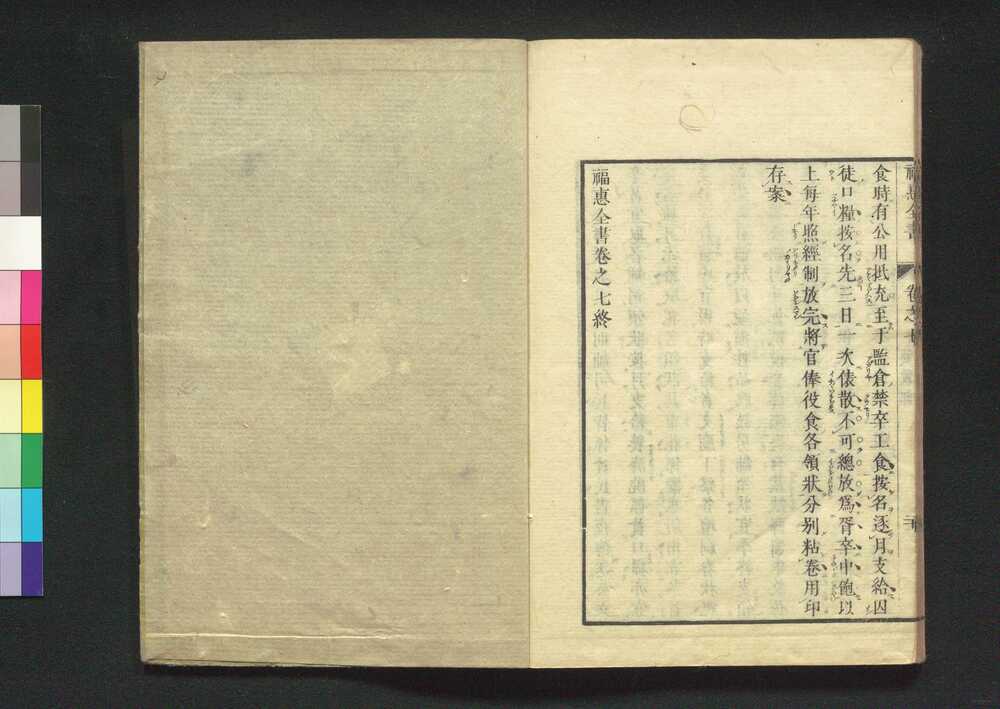 福惠全書 卷之七
食時有公用抵充至于監倉禁卒工食按名逐月支給囚
徒口糧按名先三日一次俵散不可總放爲胥卒中飽以
上每年照經制放完將官俸役食各領狀分别粘卷用印
存案
福惠全書卷之七終